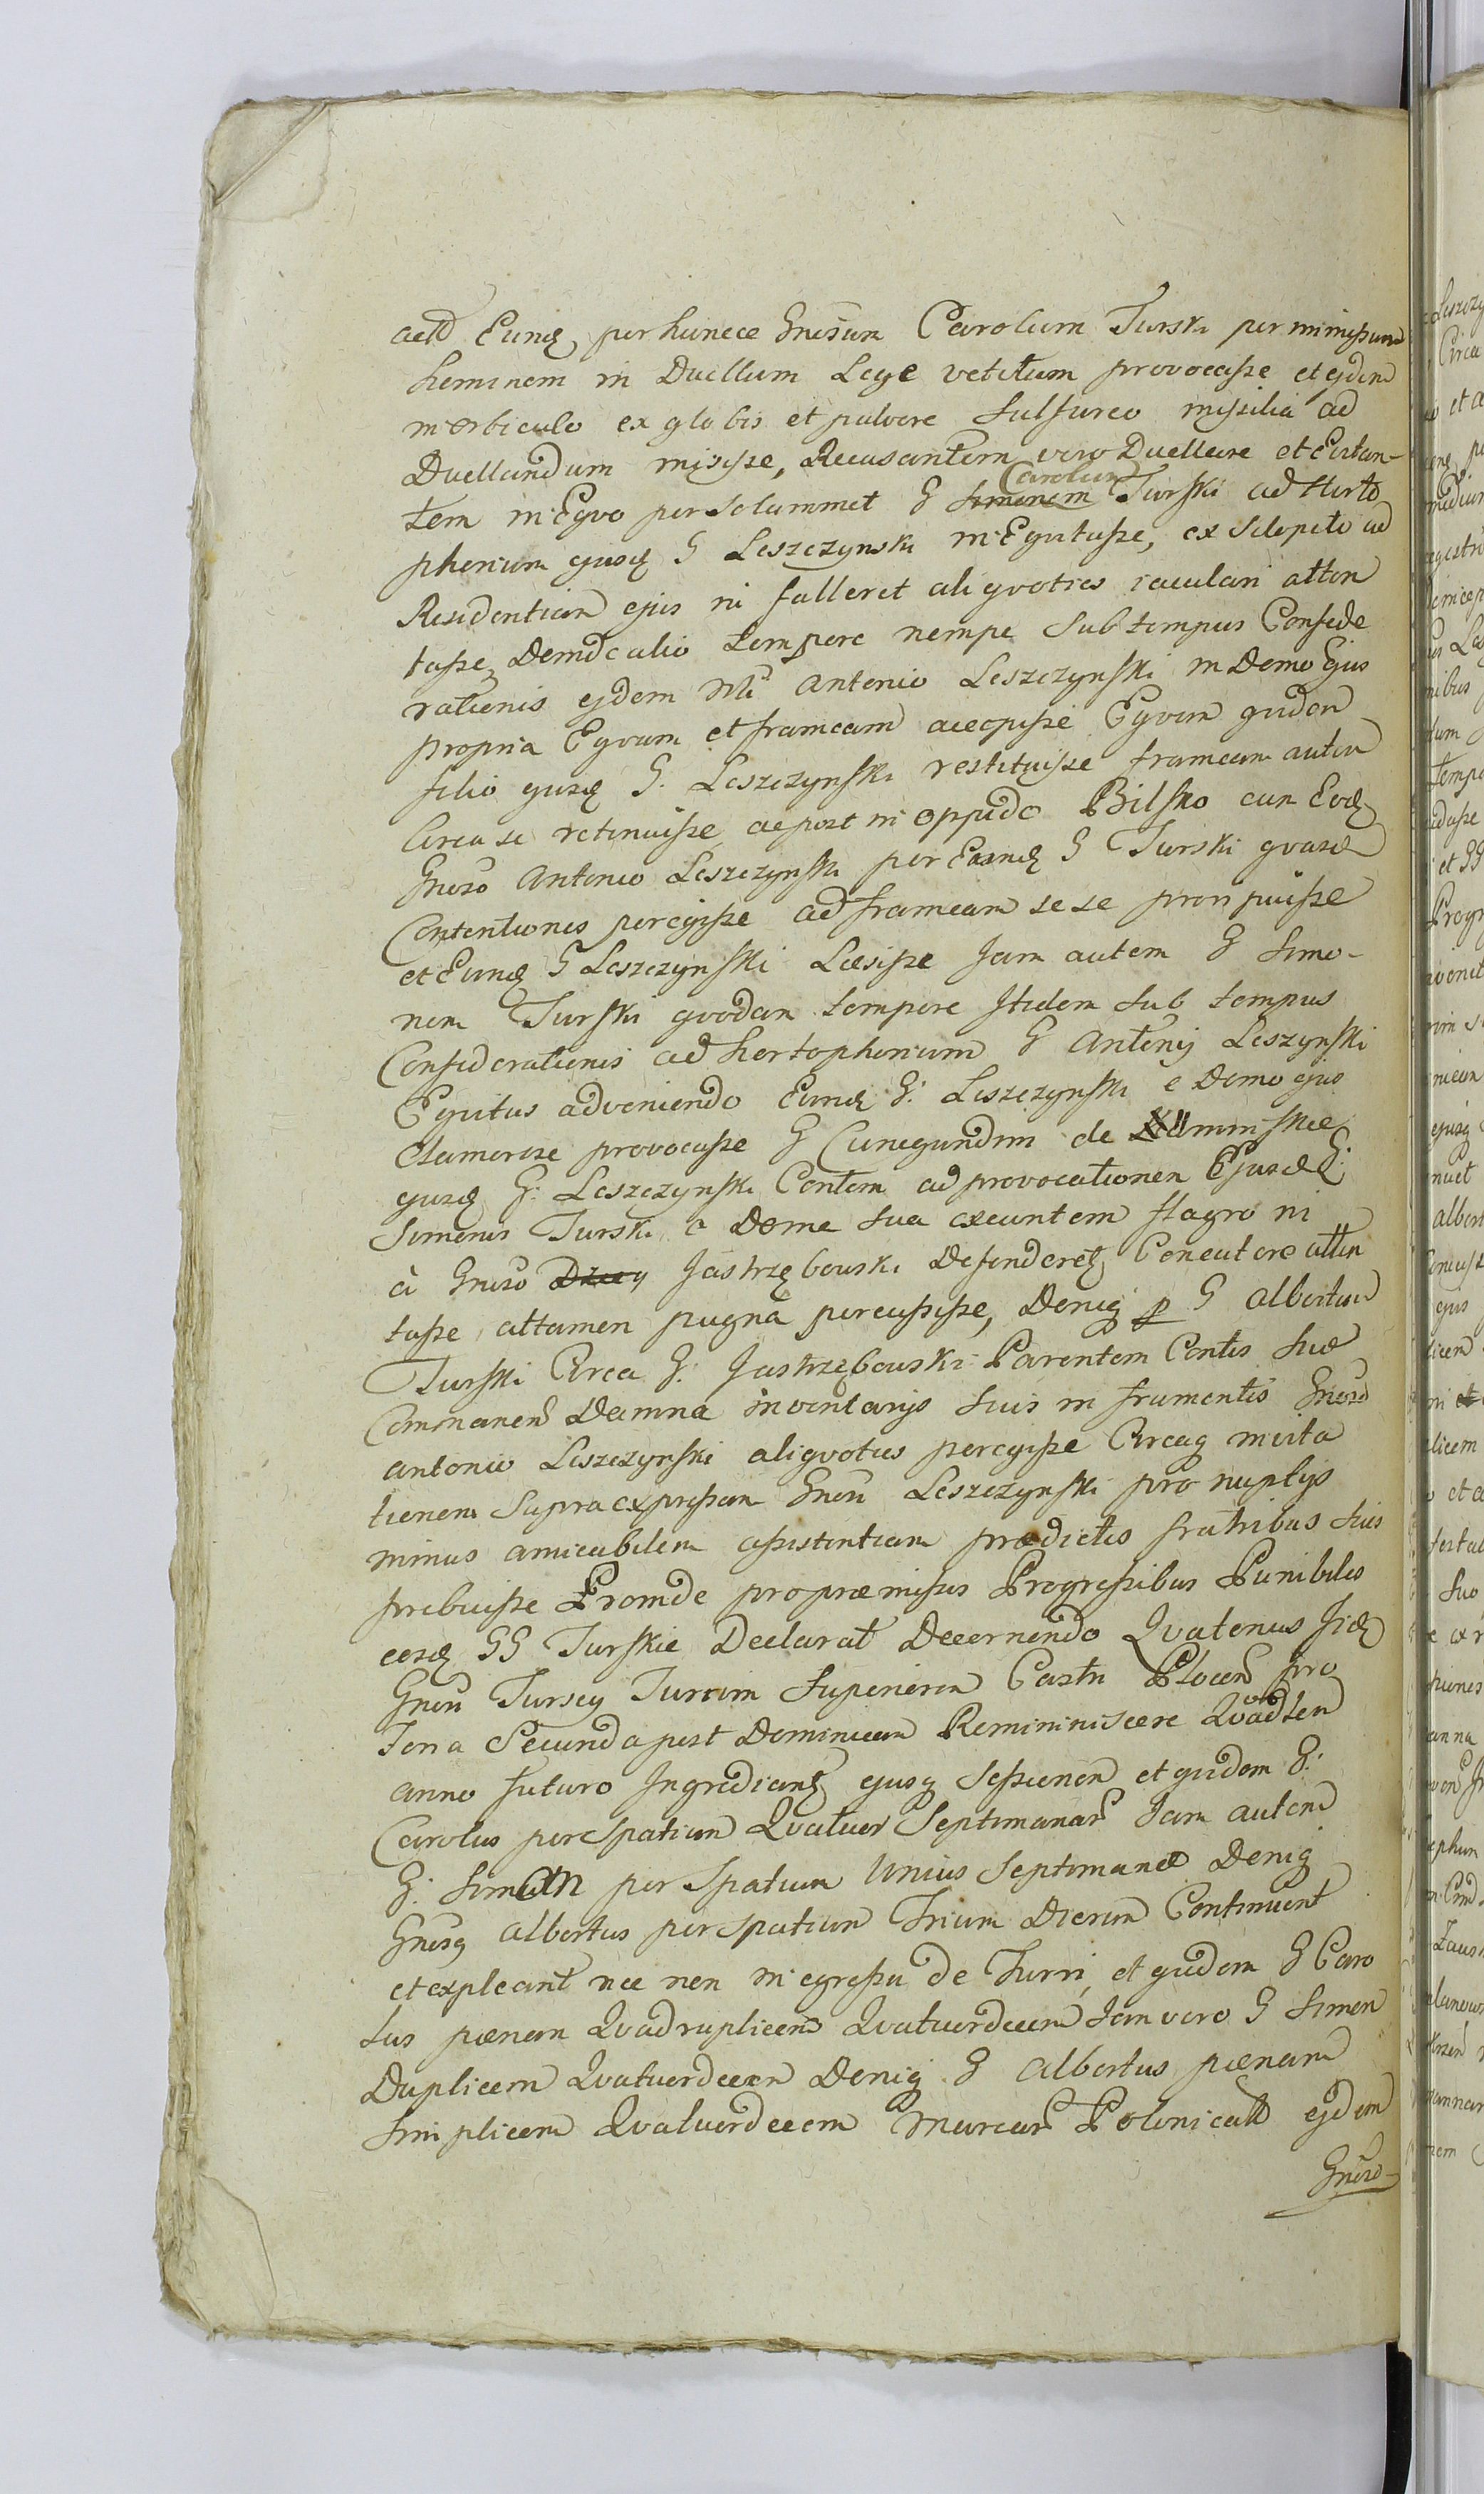 Eund per hunece Gnosum Carolum Turski per
heminem in Duellum Lege vetitum provocasse et ejdem
in orbiculo ex globis et pulvere sulfureo missilia ad
Duellandum misisse, Recusantem vero Duellare et
tem in Eqvo per solummet G Simonem Carolum Turski ad Horto
phorium ejusd G Leszczynski in Eqvitasse, ex sclopeto ad
Residentiam ejus ni falleret aliqvoties iaculari atten
tasse, Deinde alio tempore nempe sub tempus Confede
rationis ejdem Antonio Leszczynski in Domo Ejus
propria Eqvum et frameam accepisse Eqvum quidem
filio ejusd G. Leszczynski restituisse frameam autem
Circa se retinuisse ac post in oppido Bilsko cum Eod
Gnoso Antonio Leszczynski per Eund G Turski qvasd
Contentiones peregisse ad frameam sese proripuisse
et Eund G Leszczynski Laesisse Jam autem G Simo-
nem Turski qvodam tempore Itidem sub tempus
Confiderationis ad hortophorium G Antonij Leszynski
Eqvitus adveniendo Eund G: Leszczynski e Domo ejus
Clamorose provocasse G Cunegundim de
ejusd G: Leszczynski Contem ad provocationem Ejusd G:
Simonis Turski e Domo sua exeuntem flagro ni
à Gnoso Jastrzębowski Defenderet Concutere atten
tasse, attamen pugna percussisse, Deniq p G Albertum
Turski Circa G: Jastrzębowski Parentem Contis suae
Commanen Damna inventarijs suis in frumentis Gnoso
Antonio Leszczynski aliqvoties peregisse Circaq invita
tionem supra expressam Gnen Leszczynski pro nuptijs
minus amicabilem assistentiam praedictis fratribus suis
prebuisse Proinde pro praemissis Progressibus Punibiles
eosd GG Turskie Declarat Decernendo Qvatenus Iid
Gnen Turscy Turrim superiorem Castri Plocen pro
Feria Secunda post Dominicam Remininiscere Qvadlen
anno futuro Ingrediant ejusq sessionem et quidem G:
Carolus per spatium Qvatuor Septimanar Jam autem
G: Simon per spatium unius Septimanae Deniq
Gnosq Albertus per spatium Trium Dierum Continuent
et expleant nec non in egressu de Turri, et quidem G Caro
lus paenam Qvadruplicem Qvatuordecem Jam vero G Simon
Duplicem Qvatuordecem Deniq G Albertus paenam
simplicem Qvatuordecem Marcar Polonicall ejdem
Gnoso-